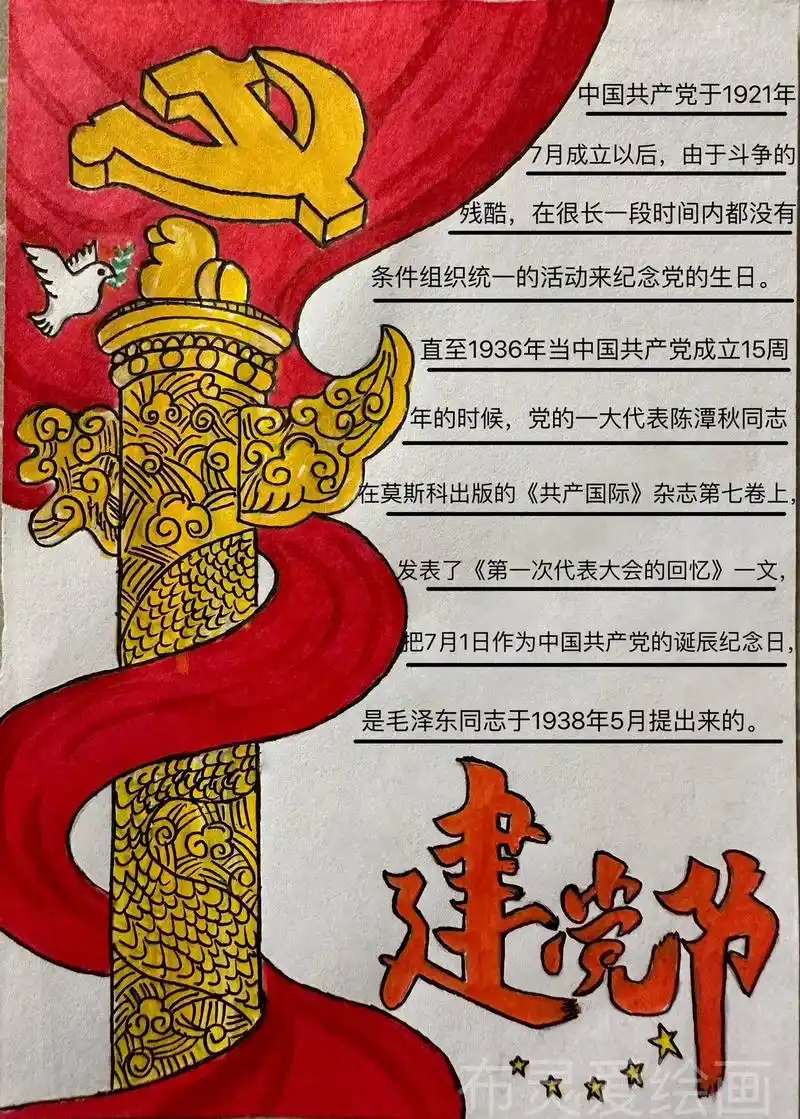 中国共产党于1921年
7月成立以后，由于斗争的
残酷，在很长一段时间内都没有
条件组织统一的活动来纪念党的生日。
直至1936年当中国共产党成立15周
年的时候，党的一大代表陈潭秋同志
在莫斯科出版的《共产国际》杂志第七卷上，
发表了《第一次代表大会的回忆》一文，
把7月1日作为中国共产党的诞辰纪念日，
是毛泽东同志于1938年5月提出来的。
建党节
布灵爱绘画